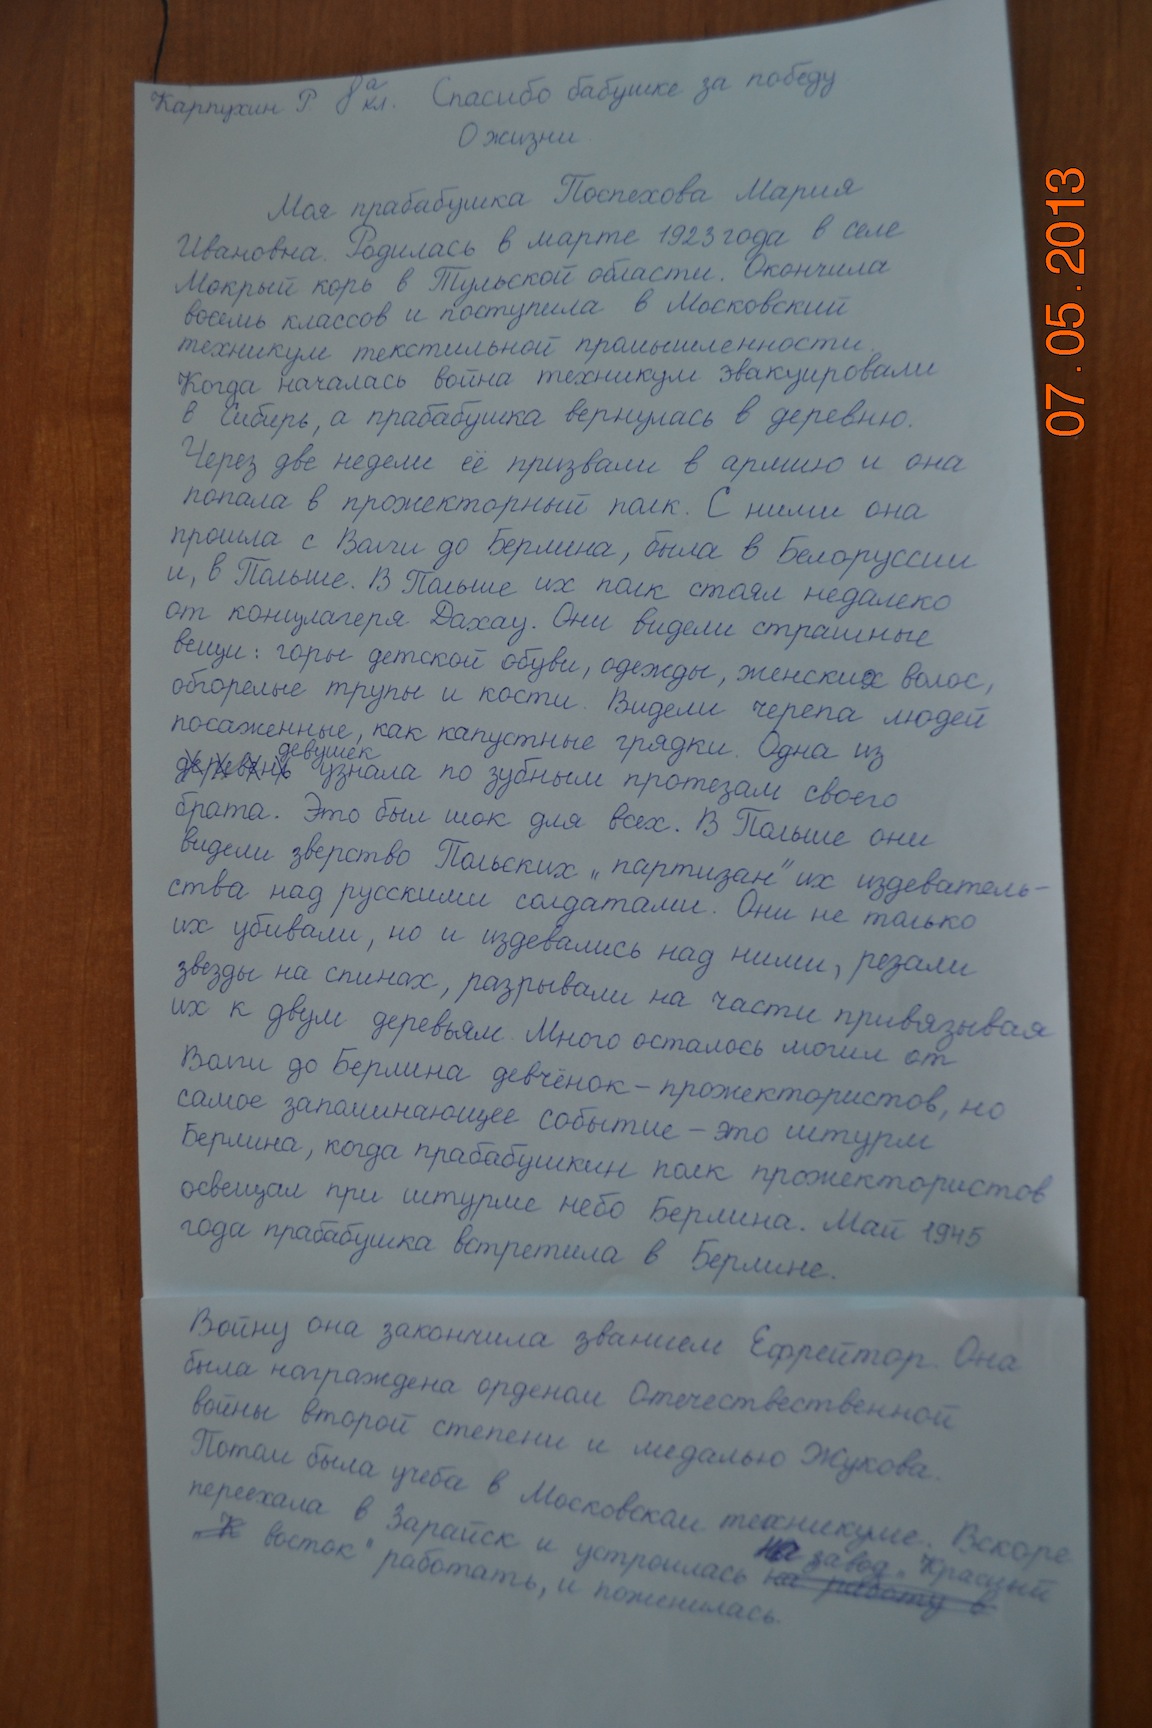 Карпухин Р 8а кл. Спасибо бабушке за победу
О жизни
Моя прабабушка Поспехова Мария
Ивановна. Родилась в марте 1923 года в селе
Мокрый корь в Тульской области. Окончила
восемь классов и поступила в Московский
техникум текстильной промышленности.
Когда началась война техникум эвакуировали
в Сибирь, а прабабушка вернулась в деревню.
Через две недели её призвали в армию и она
попала в прожекторный полк. С ними она
прошла с Волги до Берлина, была в Белоруссии
и, в Польше. В Польше их полк стоял недалеко
от концлагеря Дахау. Они видели страшные
вещи: горы детской обуви, одежды, женских волос,
обгорелые трупы и кости. Видели черепа людей
посаженные, как капустные грядки. Одна из
девушек узнала по зубным протезам своего
брата. Это был шок для всех. В Польше они
видели зверство Польских „партизан" их издеватель-
ства над русскими солдатами. Они не только
их убивали, но и издевались над ними, резали
звезды на спинах, разрывали на части привязывая
их к двум деревьям. Много осталось могил от
Волги до Берлина девчёнок – прожектористов, но
самое запоминающее событие – это штурм
Берлина, когда прабабушкин полк прожектористов
освещал при штурме небо Берлина. Май 1945
года прабабушка встретила в Берлине.
Войну она закончила званием Ефрейтор. Она
была награждена орденом Отечествественной
войны второй степени и медалью Жукова.
Потом была учеба в Московском техникуме. Вскоре
переехала в Зарайск и устроилась на завод „Красный
восток" работать, и поженилась.
07.05.2013